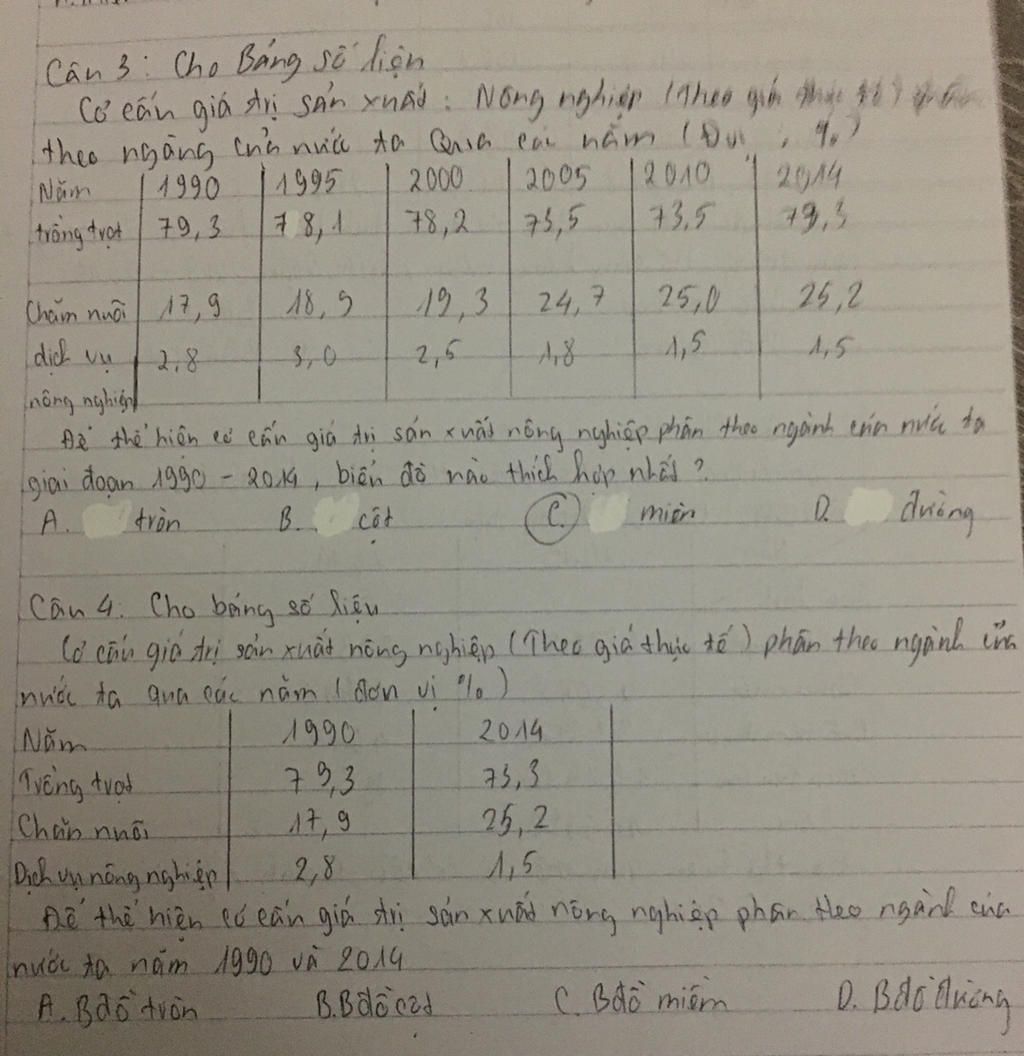 Câu 3: Cho Bảng số liện
Cơ cấu giá trị sản xuất: Nông nghiệp (Theo giá thực tế)
theo ngàng của nước ta Qua các năm (Đvị: %)
Năm 1990 1995 2000 2005 2010 2014
trồng trọt 79,3 78,1 78,2 73,5 73,5 79,3
Chăn nuôi 17,9 18,9 19,3 24,7 25,0 25,2
dịch vụ 2,8 3,0 2,5 1,8 1,5 1,5
nông nghiệp
Để thể hiện cơ cấu giá trị sản xuất nông nghiệp phân theo ngành của nước ta
giai đoạn 1990 - 2014, biểu đồ nào thích hợp nhất?
A. tròn B. cột C. miền D. đường
Câu 4: Cho bảng số liệu
Cơ cấu giá trị sản xuất nông nghiệp (Theo giá thực tế) phân theo ngành của
nước ta qua các năm (đơn vị %)
Năm 1990 2014
Trồng trọt 79,3 73,3
Chăn nuôi 17,9 25,2
Dịch vụ nông nghiệp 2,8 1,5
Để thể hiện cơ cấu giá trị sản xuất nông nghiệp phân theo ngành của
nước ta năm 1990 và 2014
A. Bđồ tròn B. Bđồ cột C. Bđồ miền D. Bđồ đường